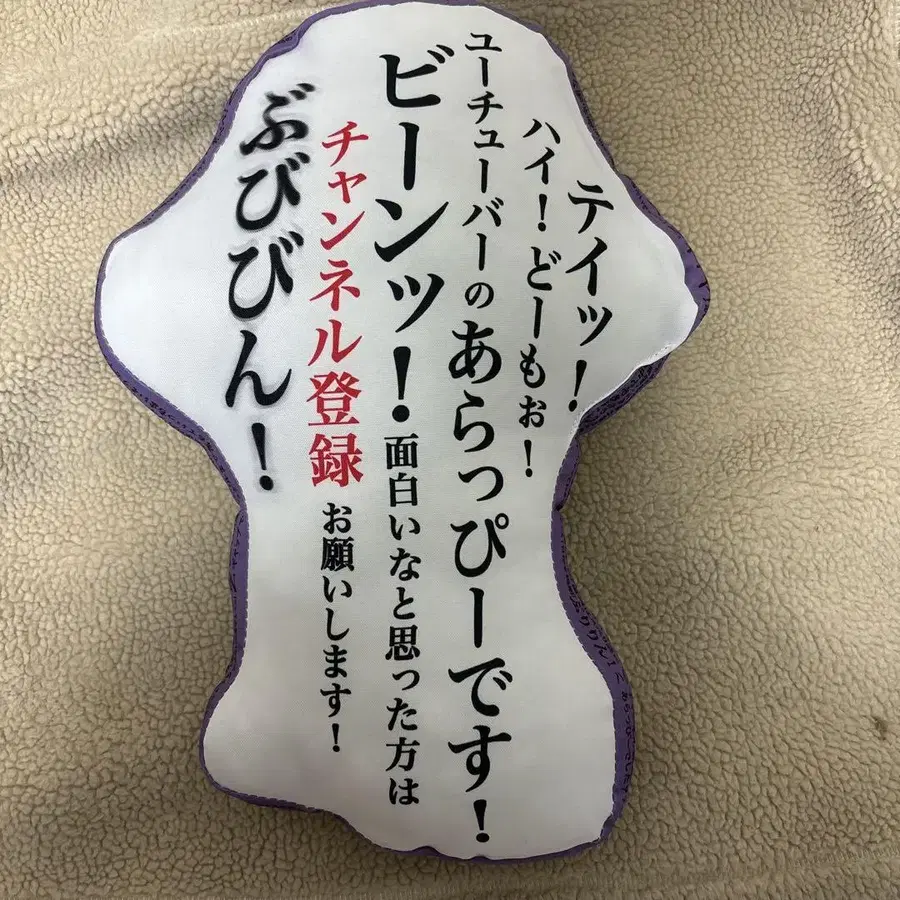 テイッ!
ハイ!どーもぉ!
ユーチューバーのあらっぴーです!
ビーンッ!面白いなと思った方は
チャンネル登録お願いします!
ぶびびん!